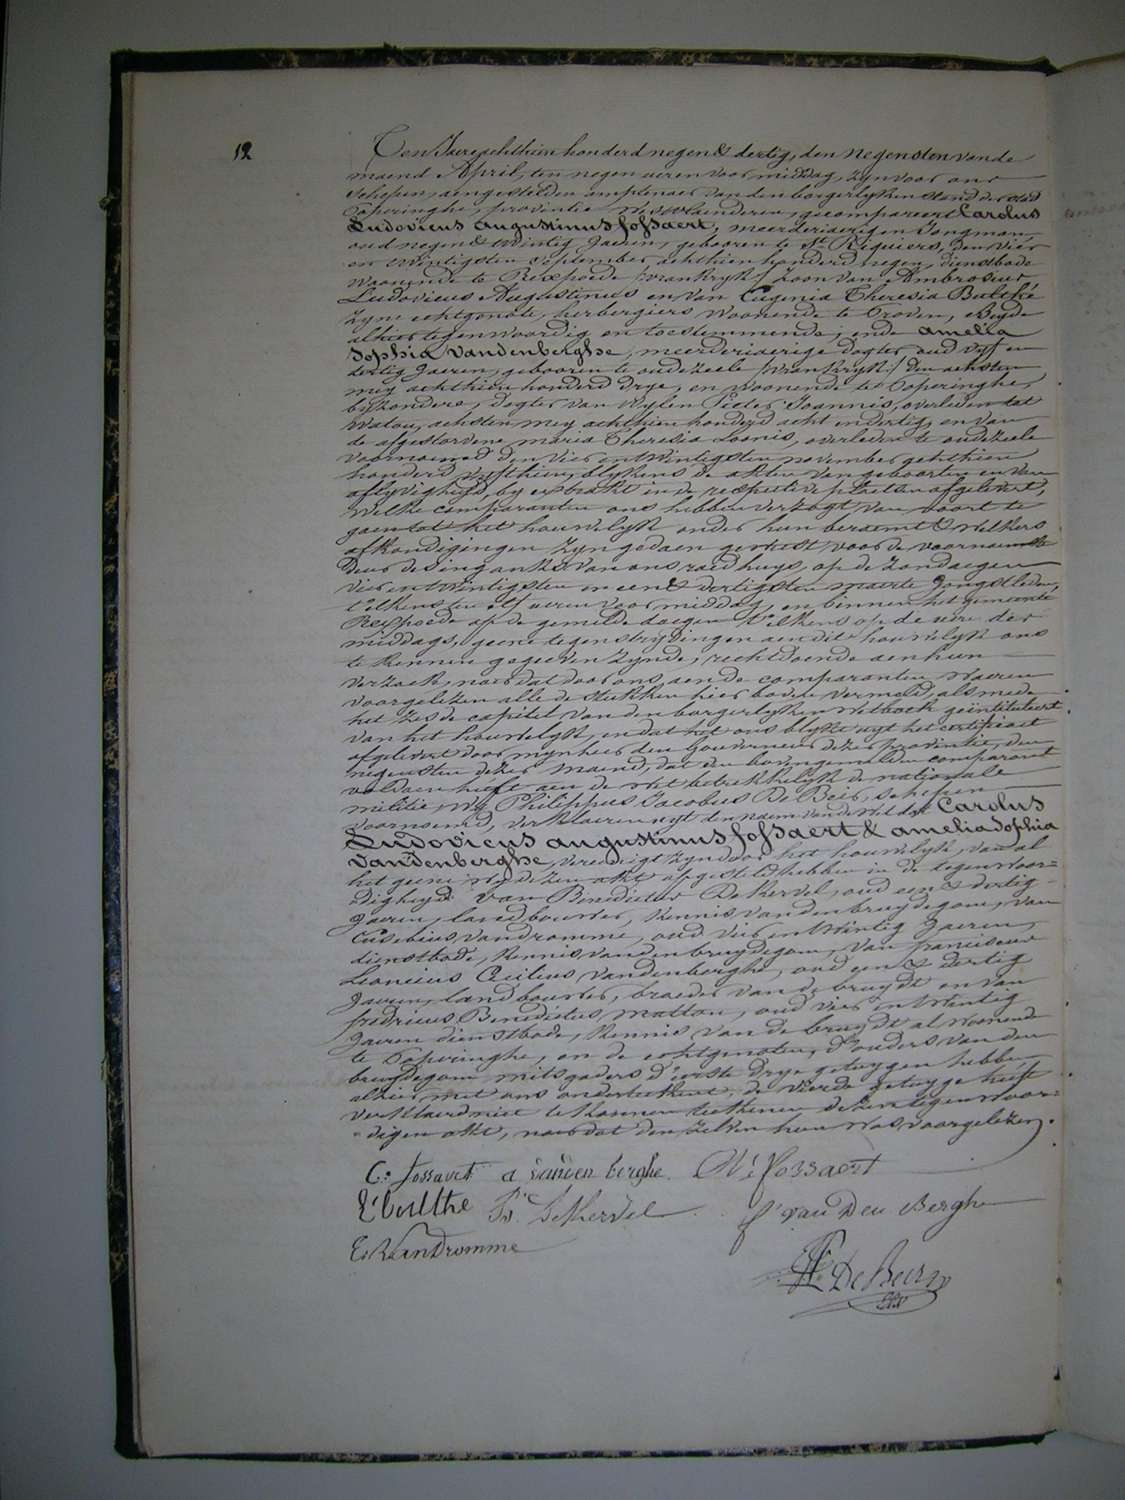 12
Ten Jaere achthien honderd negen & dertig, den negensten van de
maend April, ten negen uren voor middag, zyn voor ons
schepen, aengestelden amptenaer van den borgerlyken stand der stad
Poperinghe, provintie Westvlaenderen, gecompareert Carolus
Ludovicus Augustinus Fossaert, meerderiaerigen Jongman
oud negen & twintig Jaeren, gebooren te St Riquiers, den vier
en twintigsten september achthien honderd negen, dienstbode
woonende te Rexpoede /vrankryk/ zoon van Ambrosius
Ludovicus Augustinus en van Eugenia Theresia Bulthé
zyne echtgenote, herbergiers woonende te Croven, Beyde
alhier tegenwoordig en toestemmende; ende Amelia
Sophia Vandenberghe, meerderiaerige dogter, oud vyf en
dertig Jaeren, gebooren te oudezeele /vrankryk/ den achsten
mey achthien honderd drye, en woonende te Poperinghe,
byzondere, dogter van wylen Pieter Joannis, overleden tot
Watou, achsten mey achthien honderd acht en dertig, en van
de afgestorvene Maria Theresia Loonis, overleden te oudezeele
voornoemd den vier en twintigsten november achthien
honderd vyfthien, blykens de akten van geboorten en van
aflyvigheyd, by extrakt in de respective plaetsen afgelevert,
welke comparanten ons hebben verzogt van voort te
gaen tot het houwelyk onder hun beraemt & welkers
afkondigingen zyn gedaen geweest voor de voornaemste
deur des ingangs van ons raedhuys, op de zondagen
vier en twintigsten en een & dertigsten maerte Jongstleden,
t'elkens ten elf uren voor middag, en binnen het gemeente
Rexpoede op de gemelde dagen t'elkens op de ure der
middags, geene tegenstrydingen aen dit houwelyk ons
te kennen gegeven zynde, rechtdoende aen hun
verzoek, naer dat door ons, aen de comparanten waeren
voorgelezen alle de stukken hier boven vermeld, als mede
het zesde capitel van den borgerlyken wetboek geïntituleert
van het houwelyk, en dat het ons blykt uyt het certificaet
afgelevert door mynheer den Gouverneur dezer provintie, den
negensten dezer maend, dat den bovengemelden comparant
voldaen heeft aen de wet betrekkelyk de nationale
militie, wy Philippus Jacobus De Beir, schepen
voornoemd, verklaeren uyt den naem van de wet dat Carolus
Ludovicus Augustinus Fossaert & Amelia Sophia
Vandenberghe, vereenigt zyn door het houwelyk, van al
het geene wy dezen akt opgesteld hebben in de tegenwoor=
digheyd van Benedictus DeKervel, oud een & dertig
Jaeren, landbouwer, kennis van den bruydegom, van
Eusebius Vandromme, oud vier en twintig Jaeren,
dienstbode, kennis van den bruydegom, van Franciscus
Leoncius Cecilius Vandenberghe, oud een & dertig
Jaeren, landbouwer, broeder van de bruydt en van
Fredricus Benedictus Mattou, oud vier en twintig
Jaeren dienstbode, kennis van de bruydt al woonende
te Poperinghe, en de echtgenoten, d'ouders van den
bruydegom mitsgaders d'eerste drye getuygen hebben
alhier met ons onderteekent, de vierde getuyge heeft
verklaerd niet te konnen teekenen dezen tegenwoor=
digen akt, naer dat den zelven hun was voorgelezen.
C: Fossaert a vanden berghe. Fossaert
E: Bulthe B. DeKervel f. van Den Berghe
E: Vandromme
DeBeir